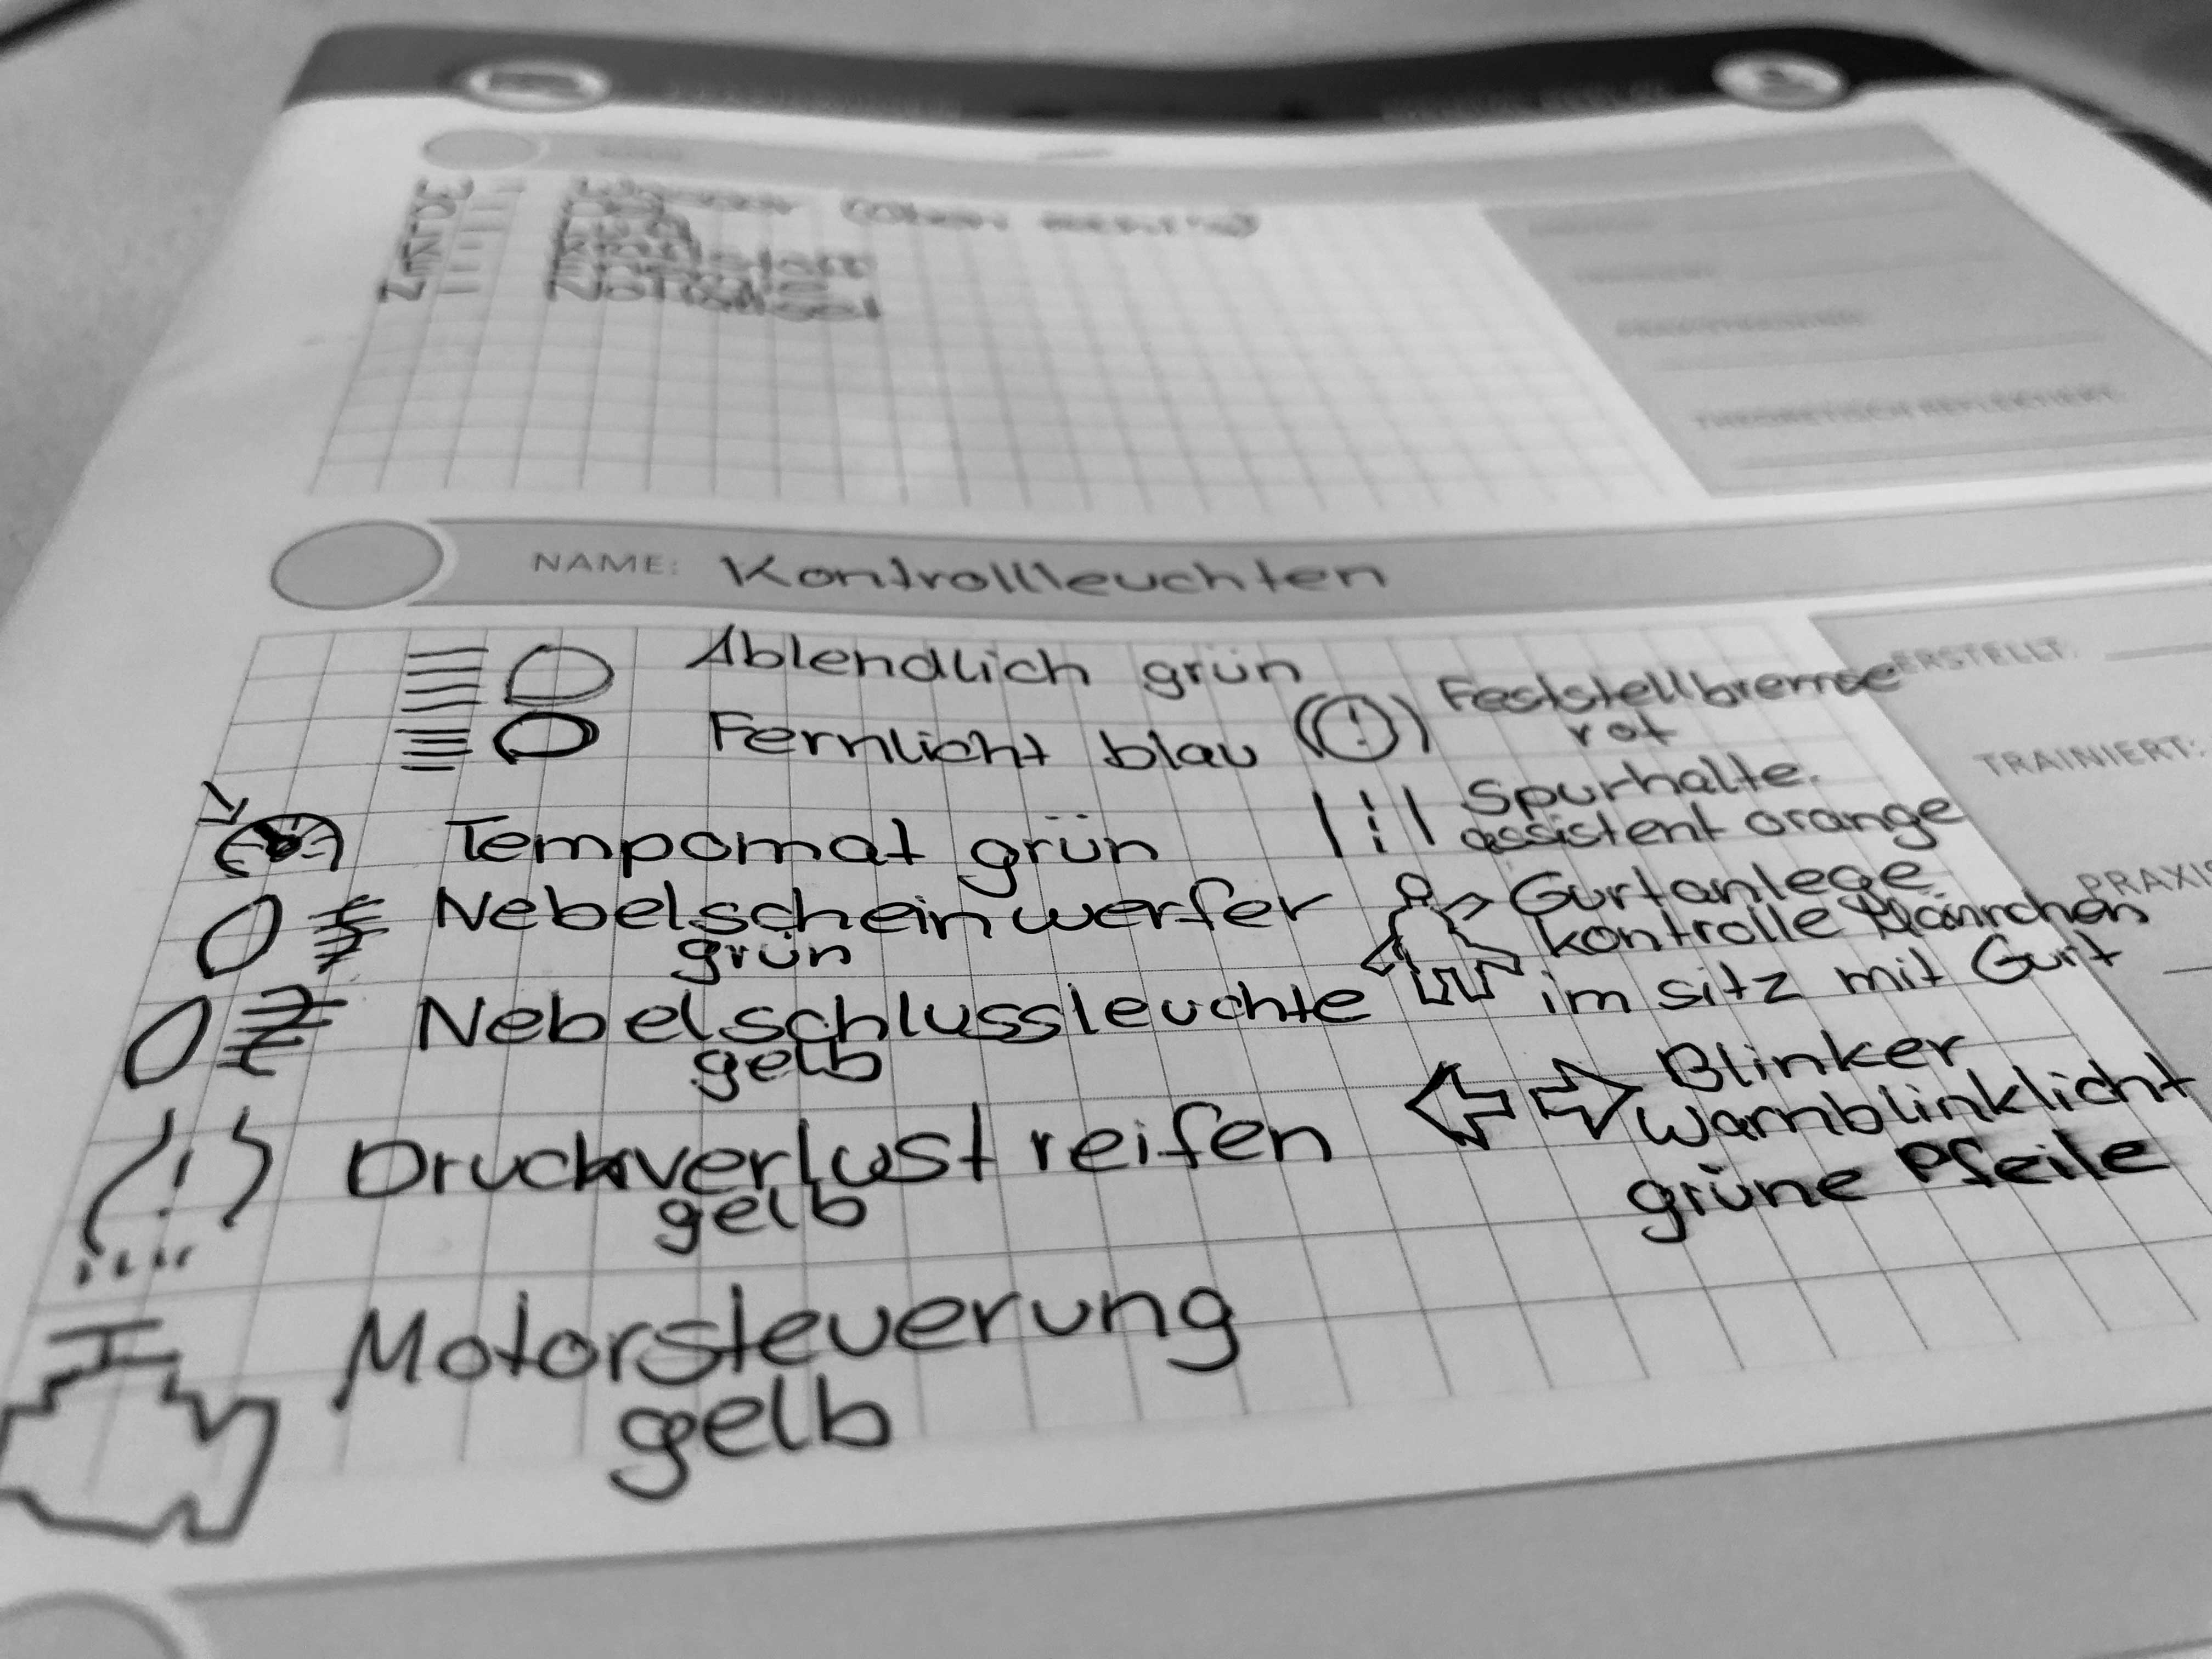 THEORETISCH REFLEKTIERT:
NAME: Kontrollleuchten
Ablendlich grün
Fernlicht blau
Tempomat grün
Nebelscheinwerfer
grün
Nebelschlussleuchte
gelb
Druckverlust reifen
gelb
Motorsteuerung
gelb
Feststellbremse
rot
Spurhalte
assistent orange
Gurtanlege
kontrolle Männchen
im sitz mit Gurt
Blinker
Warnblinklicht
grüne Pfeile
ERSTELLT:
TRAINIERT:
PRAXIS